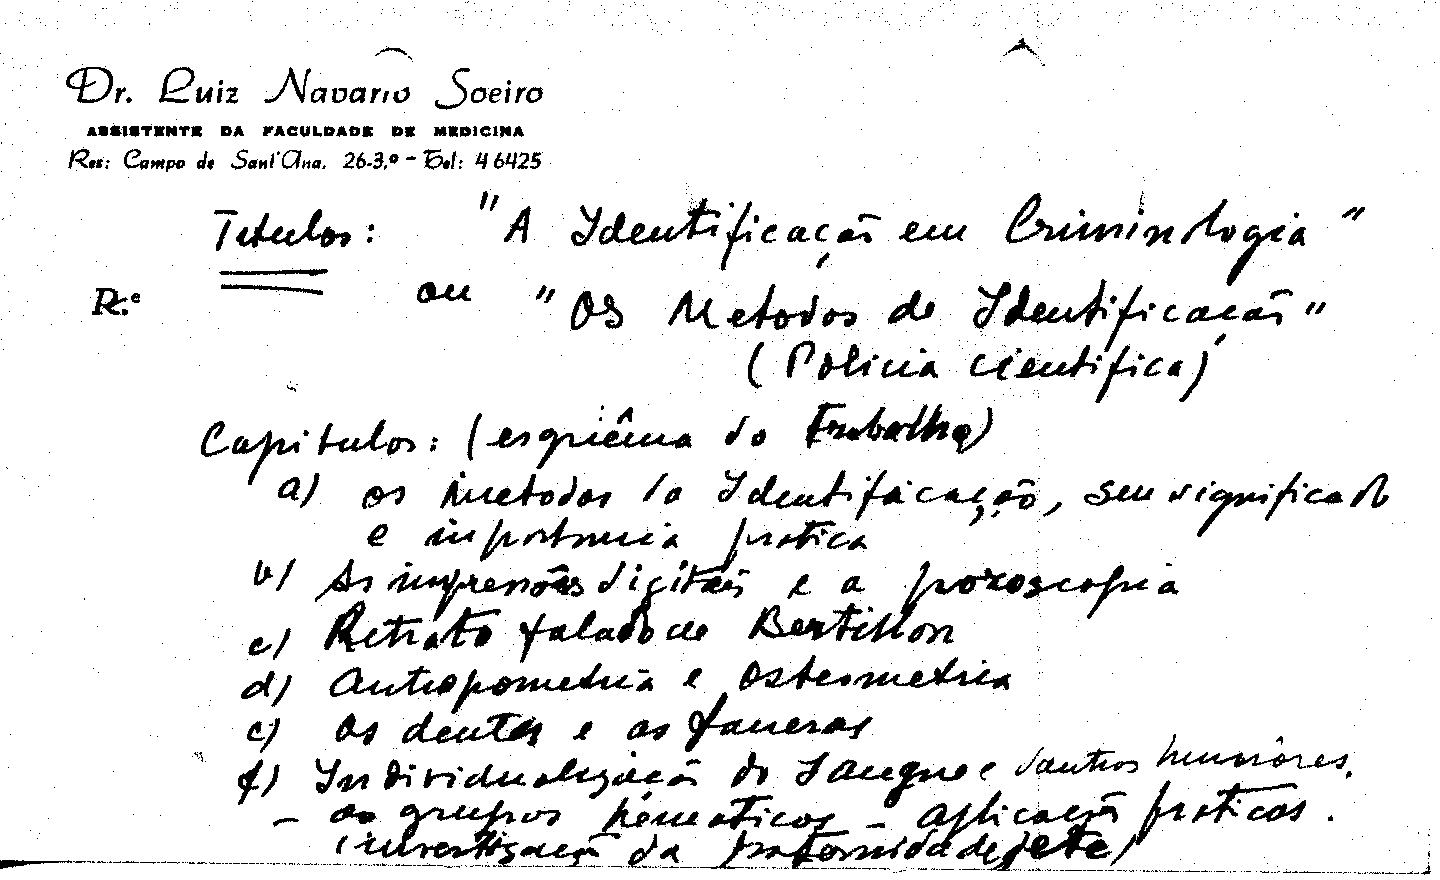 Dr. Luiz Navarro Soeiro
ASSISTENTE DA FACULDADE DE MEDICINA
Res: Campo de Sant'Ana. 26-3.º - Tel: 46425
Titulos: "A Identificação em Criminologia"
R.e ou "Os Metodos de Identificação"
(Policia cientifica)
Capitulos: (esquêma do trabalho)
a) os metodos da Identificação, seu significado
e importancia pratica
b) As impressões digitaes e a poroscopia
c) Retrato falado de Bertillon
d) Antropometria e osteometria
e) Os dentes e as faneras
f) Individualização do sangue e doutros humôres.
- os grupos hématicos - aplicação praticas.
(investigação da paternidade, etc)